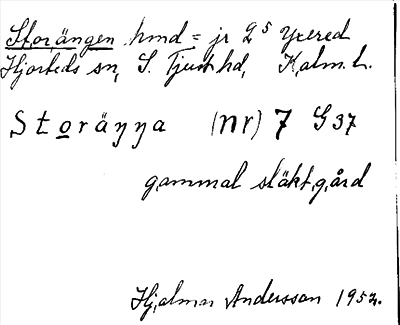 Storängen hmd = jr 2⁵ Yxered
Hjorteds sn, S. Tjust hd, Kalm. L.
Storäŋŋa (nr) 7 G 37
gammal släktgård
Hjalmar Andersson 1952.